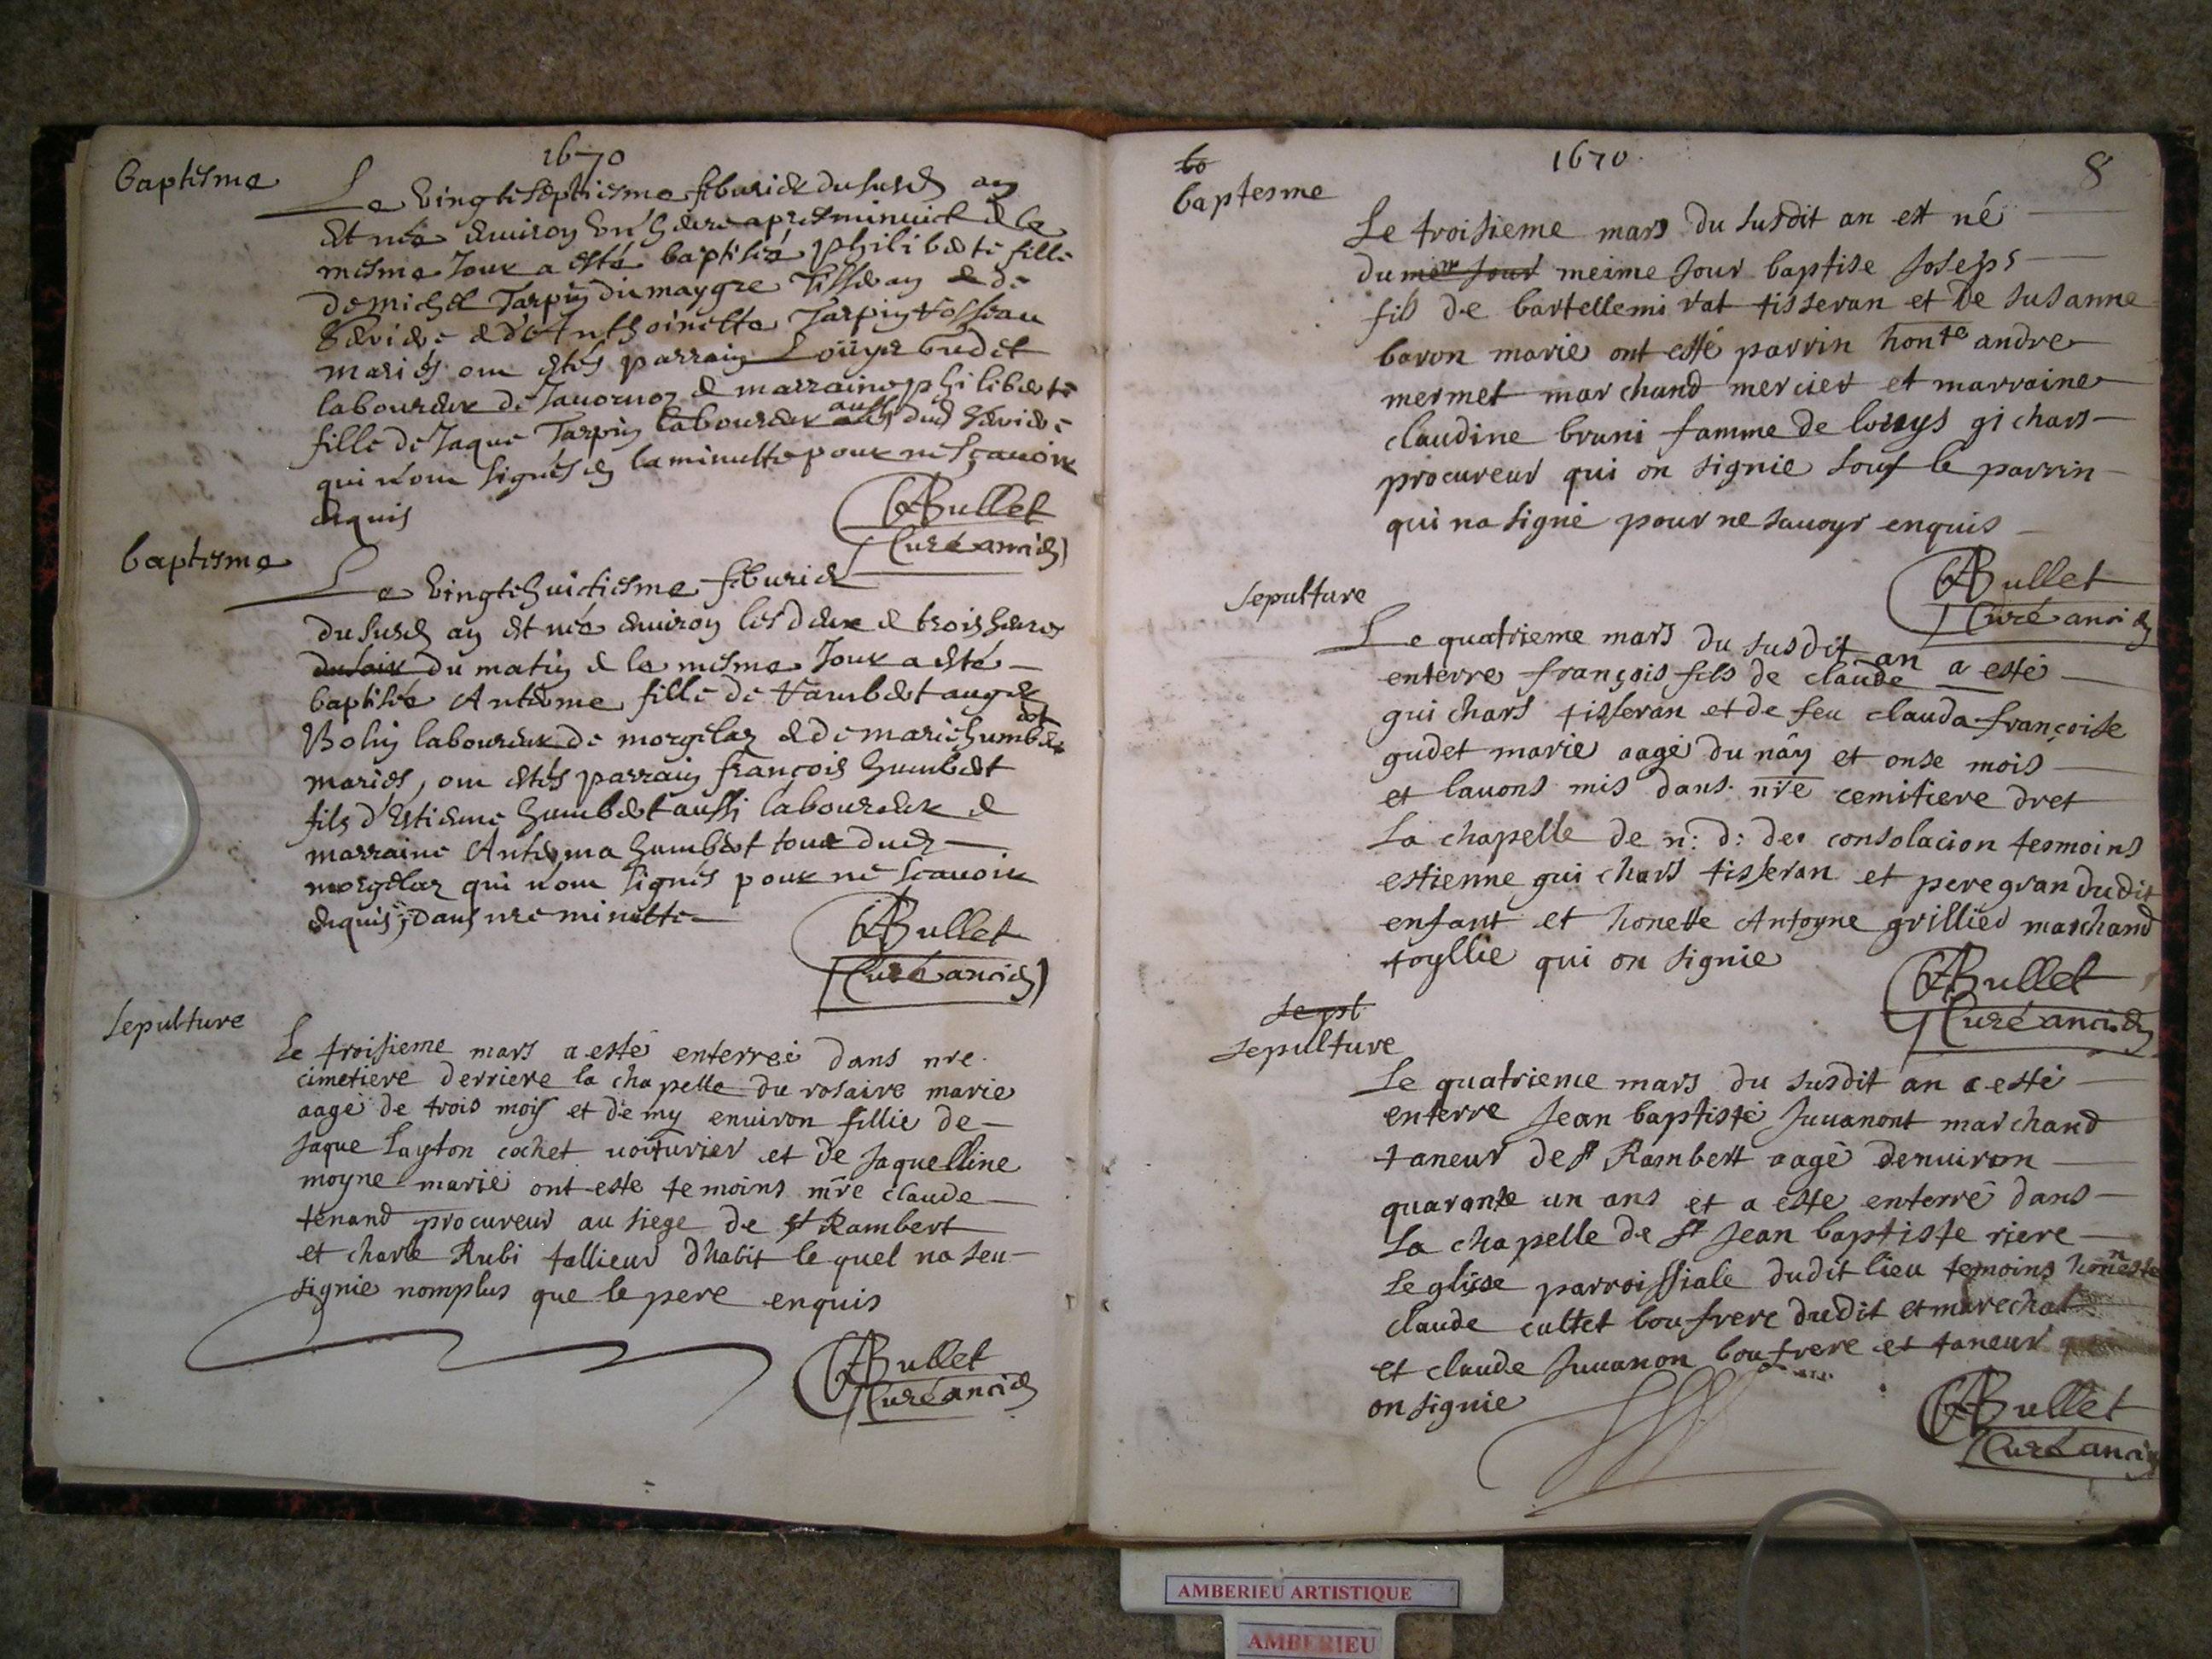 1670
baptesme
Le vingt septiesme feburier du susd an
est née environ un' heure apres minuict & le
mesme Jour a esté baptisée philiberte fille
de michel Tarpin du maygre Tisseran & de
& d'Anthoinette Tarpin
mariés, ont estés parrain Loüys budet
laboureur de & marraine philiberte
fille de Jaque Tarpin laboureur aussi dud
qui n'ont signés en la minutte pour ne sçavoir
enquis
Bullet
Curé ancien
baptesme
Le vingt huictiesme feburier
du susd an est née environ les deux & trois heures
du soir du matin & le mesme Jour a esté
baptisée Antesme fille de
laboureur de morgelaz & de marie humbert
mariés, ont estés parrain françois humbert
fils d'Estienne humbert aussi laboureur &
marraine Antesma humbert tous dud
morgelaz qui n'ont signés pour ne scavoir
enquis, Dans nre minutte
Bullet
Curé ancien
sepulture
Le troisieme mars a esté enterreé dans nre
cimetiere derriere la chapelle du rosaire marie
aagé de trois mois et demy enuiron fillie de
Jaque Layton cochet uoiturier et de Jaquelline
moyne marié ont esté temoins mre claude
tenand procureur au siege de st Rambert
et charle Rubi tallieur dhabit le quel na seu
signie nomplus que le pere enquis
Bullet
Curé ancien
1670
8
ba
baptesme
Le troisieme mars du susdit an est né
du mem jour meime jour baptise Joseph
fils de bartellemi rat tisseran et de susanne
baron marie ont esté parrin honte andre
mermet marchand mercier et marraine
claudine bruni famme de louys gichars
procureur qui on signie souf le parrin
qui na signé pour ne sauoyr enquis
Bullet
Curé ancien
sepulture
Le quatrieme mars du susdit an a esté
enterre françois fils de claude
guichars tisseran et de feu clauda françoise
gudet marie aagé du nân et onse mois
et lauons mis dans nre cemitiere dret
La chapelle de n: d: de consolacion tesmoins
estienne guichars tisseran et pere gran dudit
enfant et honeste Antoyne grillied marchand
toyllie qui on signie
Bullet
Curé ancien
sepl
sepulture
Le quatrieme mars du susdit an a esté
enterre Jean baptiste Juuanont marchand
taneur de st Rambert aagé denuiron
quarante un ans et a esté enterré dans
La chapelle de st Jean baptiste riere
Leglise parroissiale dudit lieu temoins honneste
claude cultet boufrere dudit et marechal
et claude Juuanon boufrere et taneur qui
on signie
Bullet
Curé ancien
AMBERIEU ARTISTIQUE
AMBERIEU